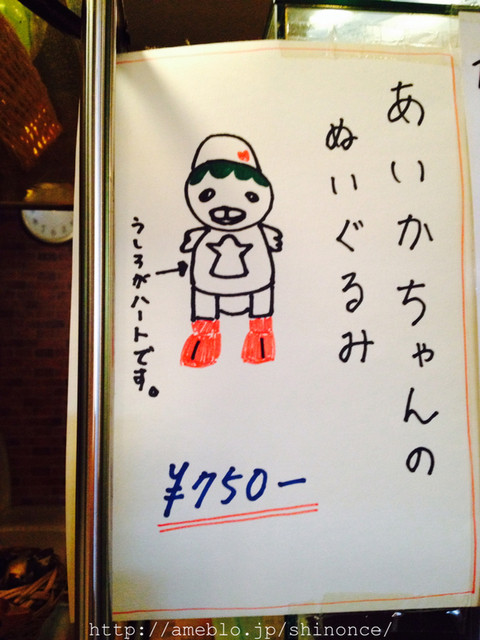 あいかちゃんの
ぬいぐるみ
うしろがハートです。
¥750ー
http://ameblo.jp/shinonce/